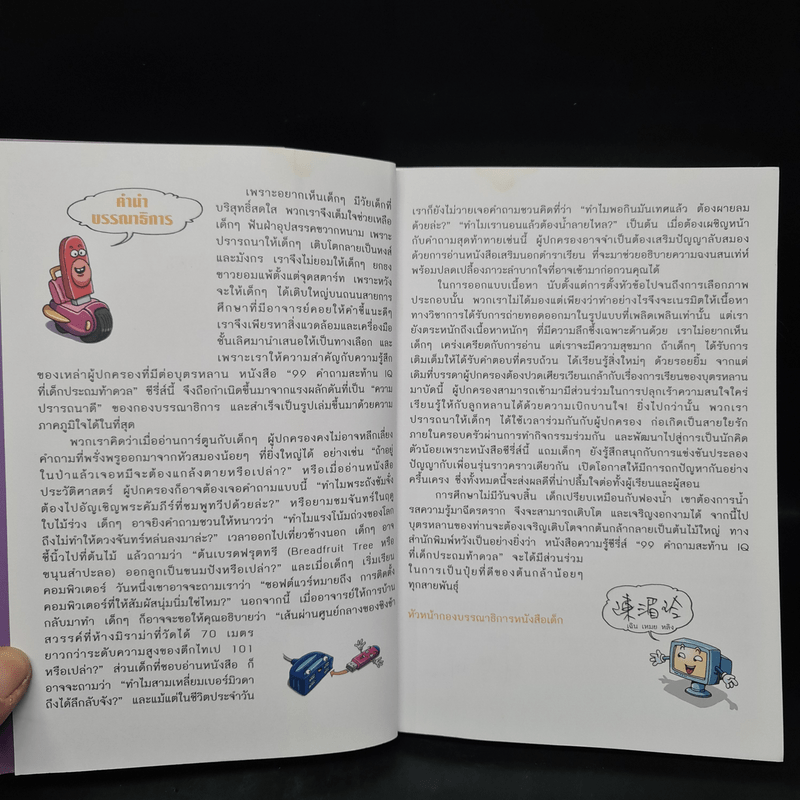 คำนำ
บรรณาธิการ
เพราะอยากเห็นเด็กๆ มีวัยเด็กที่
บริสุทธิ์สดใส พวกเราจึงเต็มใจช่วยเหลือ
เด็กๆ ฟันฝ่าอุปสรรคขวากหนาม เพราะ
ปรารถนาให้เด็กๆ เติบโตกลายเป็นหงส์
และมังกร เราจึงไม่ยอมให้เด็กๆ ยกธง
ขาวยอมแพ้ตั้งแต่จุดสตาร์ท เพราะหวัง
จะให้เด็กๆ ได้เติบใหญ่บนถนนสายการ
ศึกษาที่มีอาจารย์คอยให้คำชี้แนะดีๆ
เราจึงเพียรหาสิ่งแวดล้อมและเครื่องมือ
ชั้นเลิศมานำเสนอให้เป็นทางเลือก และ
เพราะเราให้ความสำคัญกับความรู้สึก
ของเหล่าผู้ปกครองที่มีต่อบุตรหลาน หนังสือ “99 คำถามสะท้าน IQ
ที่เด็กประถมท้าดวล” ซีรี่ส์นี้ จึงถือกำเนิดขึ้นมาจากแรงผลักดันที่เป็น “ความ
ปรารถนาดี” ของกองบรรณาธิการ และสำเร็จเป็นรูปเล่มขึ้นมาด้วยความ
ภาคภูมิใจได้ในที่สุด
พวกเราคิดว่าเมื่ออ่านการ์ตูนกับเด็กๆ ผู้ปกครองคงไม่อาจหลีกเลี่ยง
คำถามที่พรั่งพรูออกมาจากหัวสมองน้อยๆ ที่ยิ่งใหญ่ได้ อย่างเช่น “ถ้าอยู่
ในป่าแล้วเจอหมีจะต้องแกล้งตายหรือเปล่า?” หรือเมื่ออ่านหนังสือ
ประวัติศาสตร์ ผู้ปกครองก็อาจต้องเจอคำถามแบบนี้ “ทำไมพระถังซัมจั๋ง
ต้องไปอัญเชิญพระคัมภีร์ที่ชมพูทวีปด้วยล่ะ?” หรือยามชมจันทร์ในฤดู
ใบไม้ร่วง เด็กๆ อาจยิงคำถามชวนให้หนาวว่า “ทำไมแรงโน้มถ่วงของโลก
ถึงไม่ทำให้ดวงจันทร์หล่นลงมาล่ะ?” เวลาออกไปเที่ยวข้างนอก เด็กๆ อาจ
ชี้นิ้วไปที่ต้นไม้ แล้วถามว่า “ต้นเบรดฟรุตทรี (Breadfruit Tree หรือ
ขนุนสำปะลอ) ออกลูกเป็นขนมปังหรือเปล่า?” และเมื่อเด็กๆ เริ่มเรียน
คอมพิวเตอร์ วันหนึ่งเขาอาจจะถามเราว่า “ซอฟต์แวร์หมายถึง การติดตั้ง
คอมพิวเตอร์ที่ให้สัมผัสนุ่มนิ่มใช่ไหม?” นอกจากนี้ เมื่ออาจารย์ให้การบ้าน
กลับมาทำ เด็กๆ ก็อาจจะขอให้คุณอธิบายว่า “เส้นผ่านศูนย์กลางของชิงช้า
สวรรค์ที่ห้างมิราม่าที่วัดได้ 70 เมตร
ยาวกว่าระดับความสูงของตึกไทเป 101
หรือเปล่า?” ส่วนเด็กที่ชอบอ่านหนังสือ ก็
อาจจะถามว่า “ทำไมสามเหลี่ยมเบอร์มิวดา
ถึงได้ลึกลับจัง?” และแม้แต่ในชีวิตประจำวัน
เราก็ยังไม่วายเจอคำถามชวนคิดที่ว่า “ทำไมพอกินมันเทศแล้ว ต้องผายลม
ด้วยล่ะ?” “ทำไมเรานอนแล้วต้องน้ำลายไหล?” เป็นต้น เมื่อต้องเผชิญหน้า
กับคำถามสุดท้าทายเช่นนี้ ผู้ปกครองอาจจำเป็นต้องเสริมปัญญาลับสมอง
ด้วยการอ่านหนังสือเสริมนอกตำราเรียน ที่จะมาช่วยอธิบายความฉงนสนเท่ห์
พร้อมปลดเปลื้องภาวะลำบากใจที่อาจเข้ามาก่อกวนคุณได้
ในการออกแบบเนื้อหา นับตั้งแต่การตั้งหัวข้อไปจนถึงการเลือกภาพ
ประกอบนั้น พวกเราไม่ได้มองแต่เพียงว่าทำอย่างไรจึงจะเนรมิตให้เนื้อหา
ทางวิชาการได้รับการถ่ายทอดออกมาในรูปแบบที่เพลิดเพลินเท่านั้น แต่เรา
ยังตระหนักถึงเนื้อหาหนักๆ ที่มีความลึกซึ้งเฉพาะด้านด้วย เราไม่อยากเห็น
เด็กๆ เคร่งเครียดกับการอ่าน แต่เราจะมีความสุขมาก ถ้าเด็กๆ ได้รับการ
เติมเต็มให้ได้รับคำตอบที่ครบถ้วน ได้เรียนรู้สิ่งใหม่ๆ ด้วยรอยยิ้ม จากแต่
เดิมที่บรรดาผู้ปกครองต้องปวดเศียรเวียนเกล้ากับเรื่องการเรียนของบุตรหลาน
มาบัดนี้ ผู้ปกครองสามารถเข้ามามีส่วนร่วมในการปลุกเร้าความสนใจใคร่
เรียนรู้ให้กับลูกหลานได้ด้วยความเบิกบานใจ! ยิ่งไปกว่านั้น พวกเรา
ปรารถนาให้เด็กๆ ได้ใช้เวลาร่วมกันกับผู้ปกครอง ก่อเกิดเป็นสายใยรัก
ภายในครอบครัวผ่านการทำกิจกรรมร่วมกัน และพัฒนาไปสู่การเป็นนักคิด
ตัวน้อยเพราะหนังสือซีรี่ส์นี้ แถมเด็กๆ ยังรู้สึกสนุกกับการแข่งขันประลอง
ปัญญากับเพื่อนรุ่นราวคราวเดียวกัน เปิดโอกาสให้มีการถกปัญหากันอย่าง
ครื้นเครง ซึ่งทั้งหมดนี้จะส่งผลดีที่น่าปลื้มใจต่อทั้งผู้เรียนและผู้สอน
การศึกษาไม่มีวันจบสิ้น เด็กเปรียบเหมือนกับฟองน้ำ เขาต้องการน้ำ
รสความรู้มาฉีดรดราก จึงจะสามารถเติบโต และเจริญงอกงามได้ จากนี้ไป
บุตรหลานของท่านจะต้องเจริญเติบโตจากต้นกล้ากลายเป็นต้นไม้ใหญ่ ทาง
สำนักพิมพ์หวังเป็นอย่างยิ่งว่า หนังสือความรู้ซีรี่ส์ “99 คำถามสะท้าน IQ
ที่เด็กประถมท้าดวล” จะได้มีส่วนร่วม
ในการเป็นปุ๋ยที่ดีของต้นกล้าน้อยๆ
ทุกสายพันธุ์
陳湄玲
เฉิน เหมย หลิง
หัวหน้ากองบรรณาธิการหนังสือเด็ก